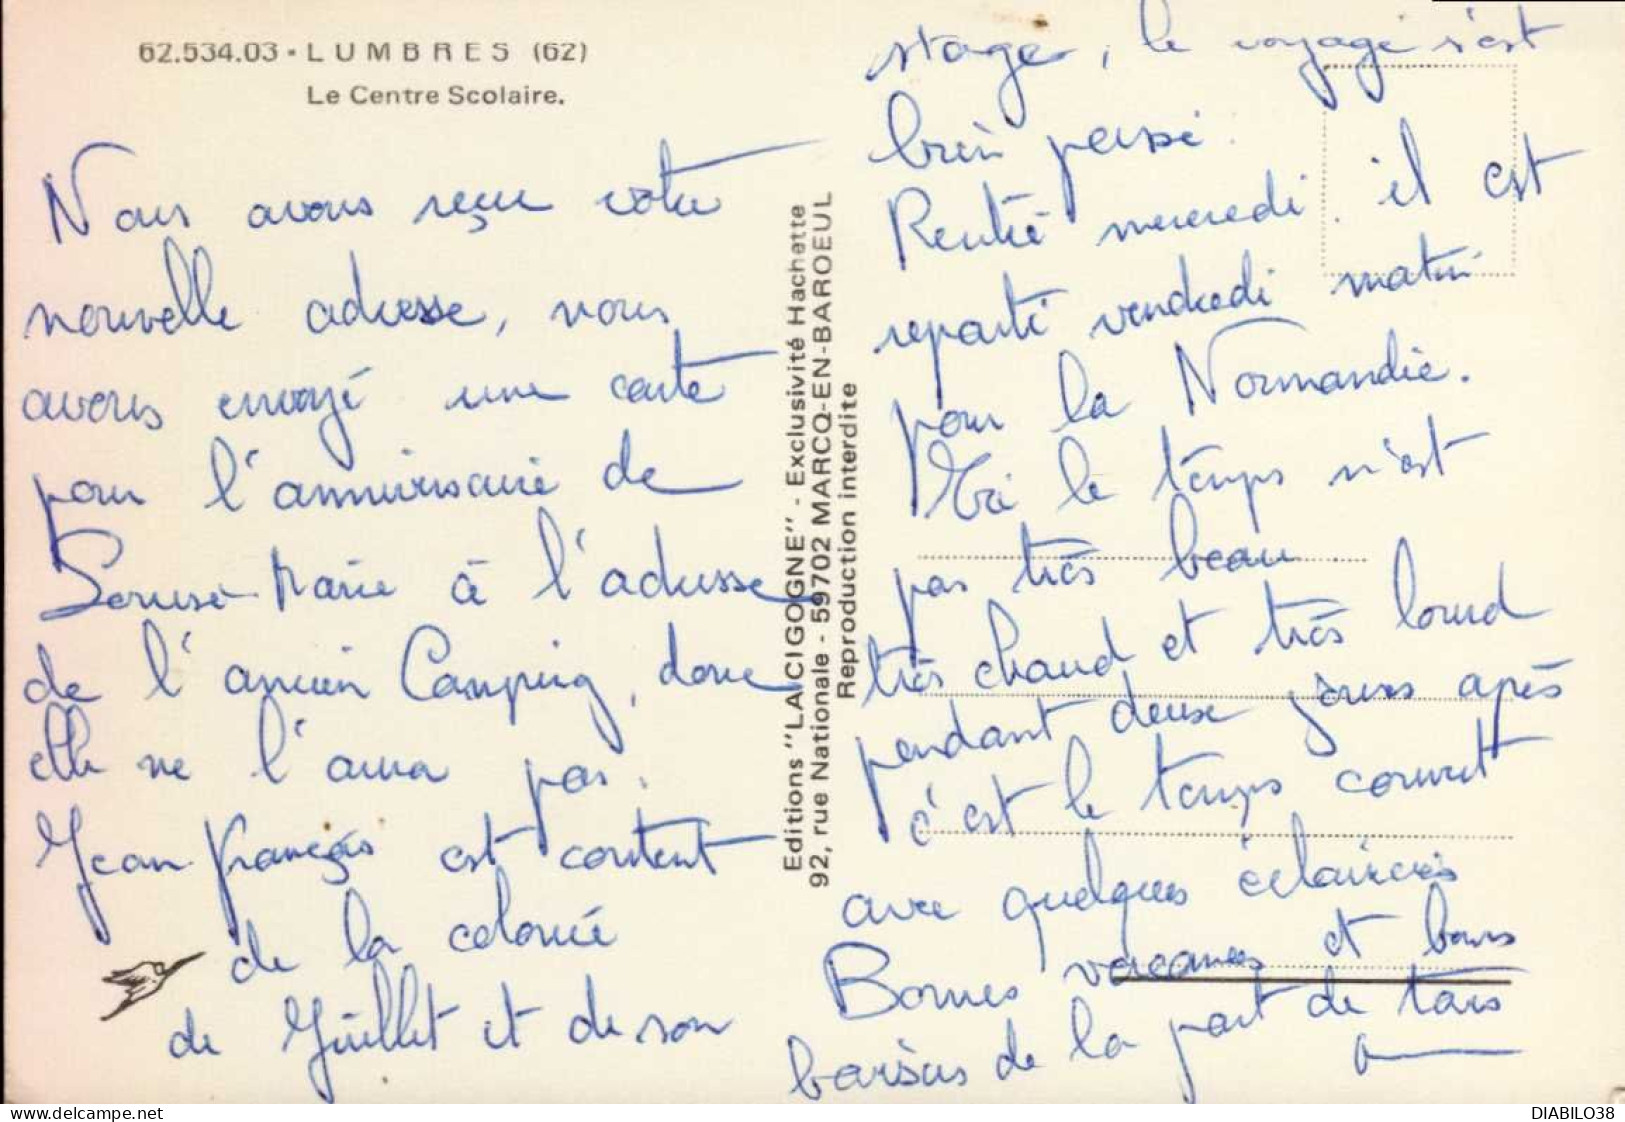 62.534.03 - LUMBRES (62)
Le Centre Scolaire.
Nous avons reçu votre
nouvelle adresse, nous
avons envoyé une carte
pour l'anniversaire de
Louise-Marie à l'adresse
de l'ancien Camping, donc
elle ne l'aura pas.
Jean François est content
de la colonie
de Juillet et de son
stage, le voyage s'est
bien passé.
Rentré mercredi il est
reparti vendredi matin
pour la Normandie.
Ici le temps n'est
pas très beau
très chaud et très lourd
pendant deux jours après
c'est le temps couvert
avec quelques éclaircies
Bonnes vacances et bons
baisers de la part de tous
Editions "LA CIGOGNE" - Exclusivité Hachette
92, rue Nationale - 59702 MARCQ-EN-BAROEUL
Reproduction interdite
DIABILO38